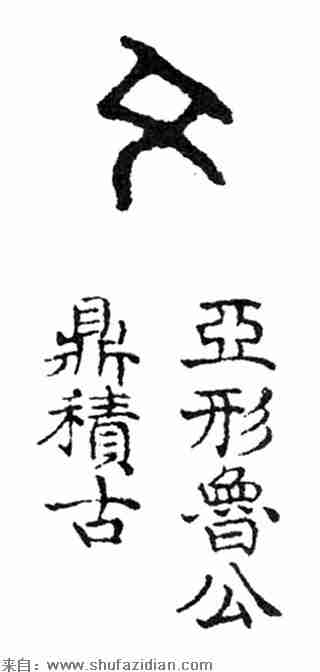 亞形魯公
鼎積古
来自：www.shufazidian.com